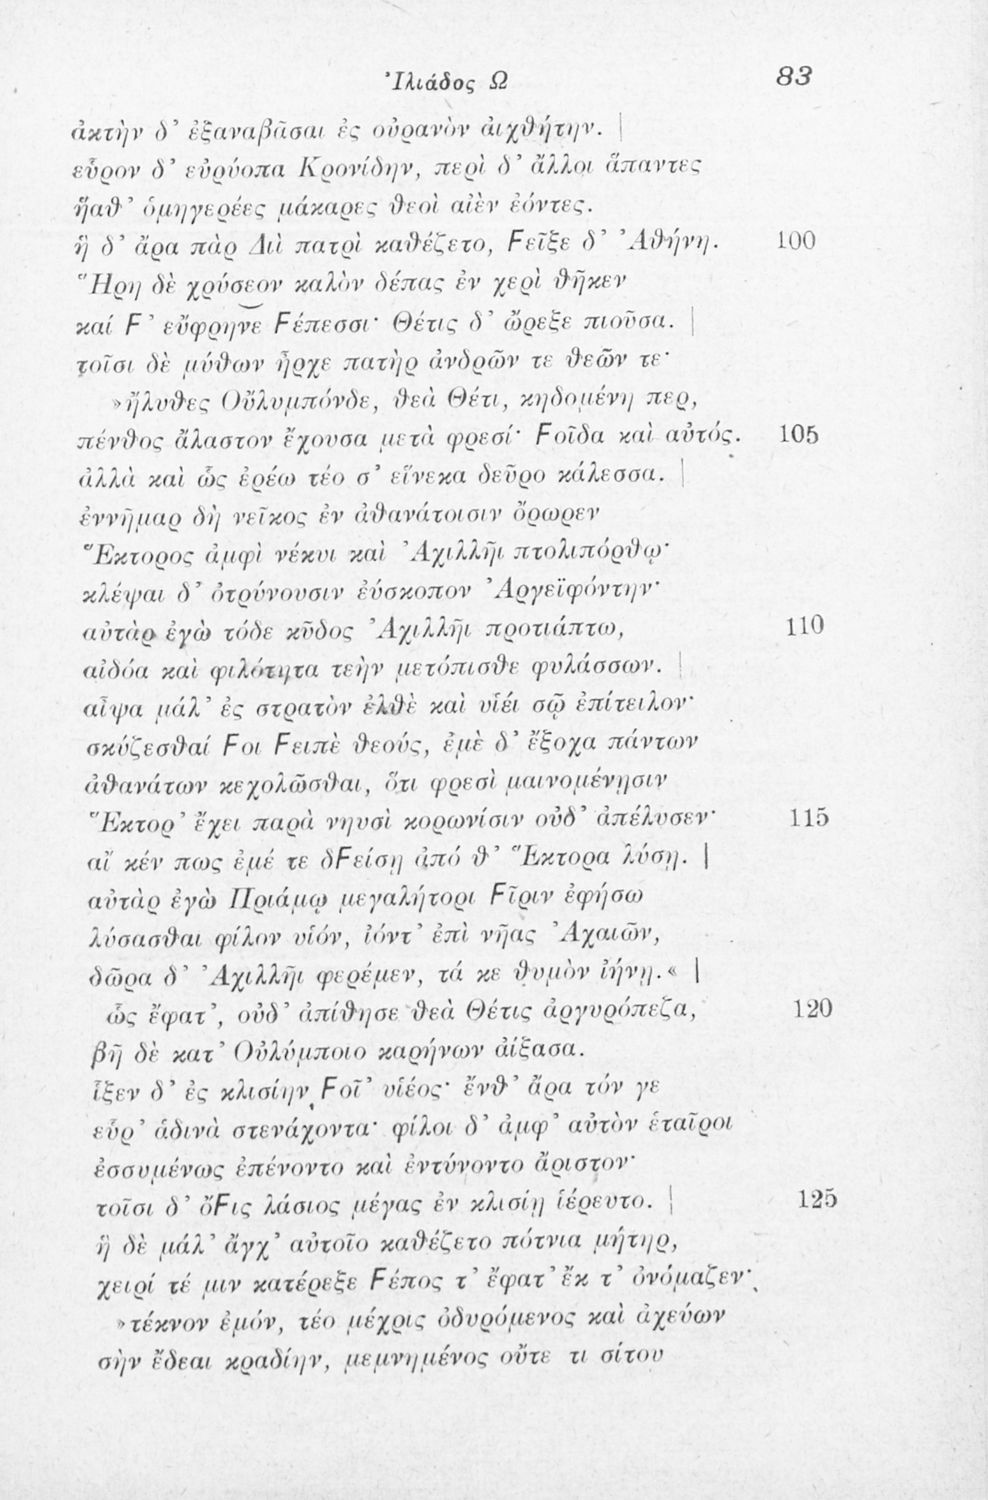 Ἰλιάδος Ω 83
ἀκτὴν δ᾽ ἐξαναβᾶσαι ἐς οὐρανὸν ἀιχθήτην. |
εὗρον δ᾽ εὐρύοπα Κρονίδην, περὶ δ᾽ ἄλλοι ἅπαντες
ἥαθ᾽ ὁμηγερέες μάκαρες θεοὶ αἰὲν ἐόντες.
ἣ δ᾽ ἄρα πὰρ Διὶ πατρὶ καθέζετο, Ϝεῖξε δ᾽ Ἀθήνη. 100
Ἥρη δὲ χρύσεον καλὸν δέπας ἐν χερὶ θῆκεν
καί Ϝ᾽ εὔφρηνε Ϝέπεσσι· Θέτις δ᾽ ὤρεξε πιοῦσα. |
τοῖσι δὲ μύθων ἦρχε πατὴρ ἀνδρῶν τε θεῶν τε·
»ἤλυθες Οὔλυμπόνδε, θεὰ Θέτι, κηδομένη περ,
πένθος ἄλαστον ἔχουσα μετὰ φρεσί· Ϝοῖδα καὶ αὐτός. 105
ἀλλὰ καὶ ὧς ἐρέω τέο σ᾽ εἵνεκα δεῦρο κάλεσσα. |
ἐννῆμαρ δὴ νεῖκος ἐν ἀθανάτοισιν ὄρωρεν
Ἕκτορος ἀμφὶ νέκυι καὶ Ἀχιλλῆι πτολιπόρθῳ·
κλέψαι δ᾽ ὀτρύνουσιν ἐύσκοπον Ἀργεϊφόντην·
αὐτὰρ ἐγὼ τόδε κῦδος Ἀχιλλῆι προτιάπτω, 110
αἰδόα καὶ φιλότητα τεὴν μετόπισθε φυλάσσων. |
αἶψα μάλ᾽ ἐς στρατὸν ἐλθὲ καὶ υἱέι σῷ ἐπίτειλον·
σκύζεσθαί Ϝοι Ϝειπὲ θεούς, ἐμὲ δ᾽ ἔξοχα πάντων
ἀθανάτων κεχολῶσθαι, ὅτι φρεσὶ μαινομένῃσιν
Ἕκτορ᾽ ἔχει παρὰ νηυσὶ κορωνίσιν οὐδ᾽ ἀπέλυσεν· 115
αἴ κέν πως ἐμέ τε δϜείσῃ ἀπό θ᾽ Ἕκτορα λύσῃ. |
αὐτὰρ ἐγὼ Πριάμῳ μεγαλήτορι Ϝῖριν ἐφήσω
λύσασθαι φίλον υἱόν, ἰόντ᾽ ἐπὶ νῆας Ἀχαιῶν,
δῶρα δ᾽ Ἀχιλλῆι φερέμεν, τά κε θυμὸν ἰήνῃ.« |
ὣς ἔφατ᾽, οὐδ᾽ ἀπίθησε θεὰ Θέτις ἀργυρόπεζα, 120
βῆ δὲ κατ᾽ Οὐλύμποιο καρήνων ἀίξασα.
ἷξεν δ᾽ ἐς κλισίην Ϝοῖ᾽ υἱέος· ἔνθ᾽ ἄρα τόν γε
εὗρ᾽ ἁδινὰ στενάχοντα· φίλοι δ᾽ ἀμφ᾽ αὐτὸν ἑταῖροι
ἐσσυμένως ἐπένοντο καὶ ἐντύνοντο ἄριστον·
τοῖσι δ᾽ ὄϜις λάσιος μέγας ἐν κλισίῃ ἱέρευτο. | 125
ἣ δὲ μάλ᾽ ἄγχ᾽ αὐτοῖο καθέζετο πότνια μήτηρ,
χειρί τέ μιν κατέρεξε Ϝέπος τ᾽ ἔφατ᾽ ἔκ τ᾽ ὀνόμαζεν·
»τέκνον ἐμόν, τέο μέχρις ὀδυρόμενος καὶ ἀχεύων
σὴν ἔδεαι κραδίην, μεμνημένος οὔτε τι σίτου